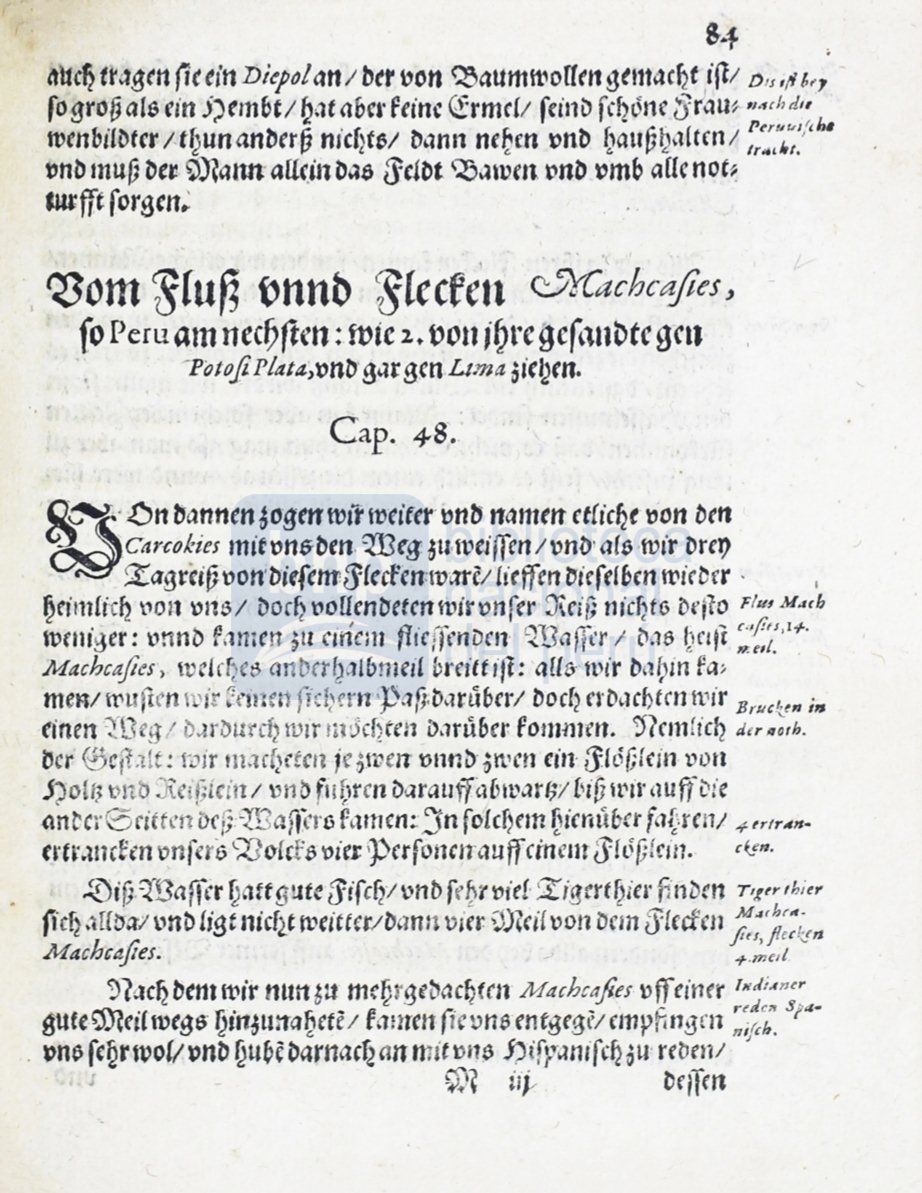 84
auch tragen sie ein Diepol an / der von Baumwollen gemacht ist /
so groß als ein Hembt / hat aber keine Ermel / seind schöne Frau⸗
wenbildter / thun anderß nichts / dann nehen vnd haußhalten /
vnd muß der Mann allein das Feldt Bawen vnd vmb alle not⸗
turfft sorgen.
Dis ist bey
nach die
Peruuische
tracht.
Vom Fluß vnnd Flecken Machcasies,
so Peru am nechsten : wie 2. von jhre gesandte gen
Potosi Plata, vnd gar gen Lima ziehen.
Cap. 48.
VOn dannen zogen wir weiter vnd namen etliche von den
Carcokies mit vns den Weg zu weissen / vnd als wir drey
Tagreiß von diesem Flecken warē / liessen dieselben wieder
heimlich von vns / doch vollendeten wir vnser Reiß nichts desto
weniger : vnnd kamen zu einem fliessenden Wasser / das heist
Machcasies, welches anderhalbmeil breitt ist : alls wir dahin ka⸗
men / wusten wir keinen sichern Paß darüber / doch erdachten wir
einen Weg / dardurch wir möchten darüber kommen. Nemlich
der Gestalt : wir macheten je zwen vnnd zwen ein Flößlein von
Holtz vnd Reißlein / vnd fuhren darauff abwartz / biß wir auff die
ander Seitten deß Wassers kamen : In solchem hienüber fahren /
ertrancken vnsers Volcks vier Personen auff einem Flößlein.
Flus Mach
casies, 14.
meil.
Brucken in
der noth.
4 ertran-
cken.
Diß Wasser hatt gute Fisch / vnd sehr viel Tigerthier finden
sich allda / vnd ligt nicht weitter / dann vier Meil von dem Flecken
Machcasies.
Tiger thier
Machca-
sies, flecken
4. meil
Nach dem wir nun zu mehrgedachten Machcasies vff einer
gute Meil wegs hinzunahetē / kamen sie vns entgegē / empfingen
vns sehr wol / vnd hubē darnach an mit vns Hispanisch zu reden /
Indianer
reden Spa-
nisch.
M iij dessen
biblioteca
nacional
del perú